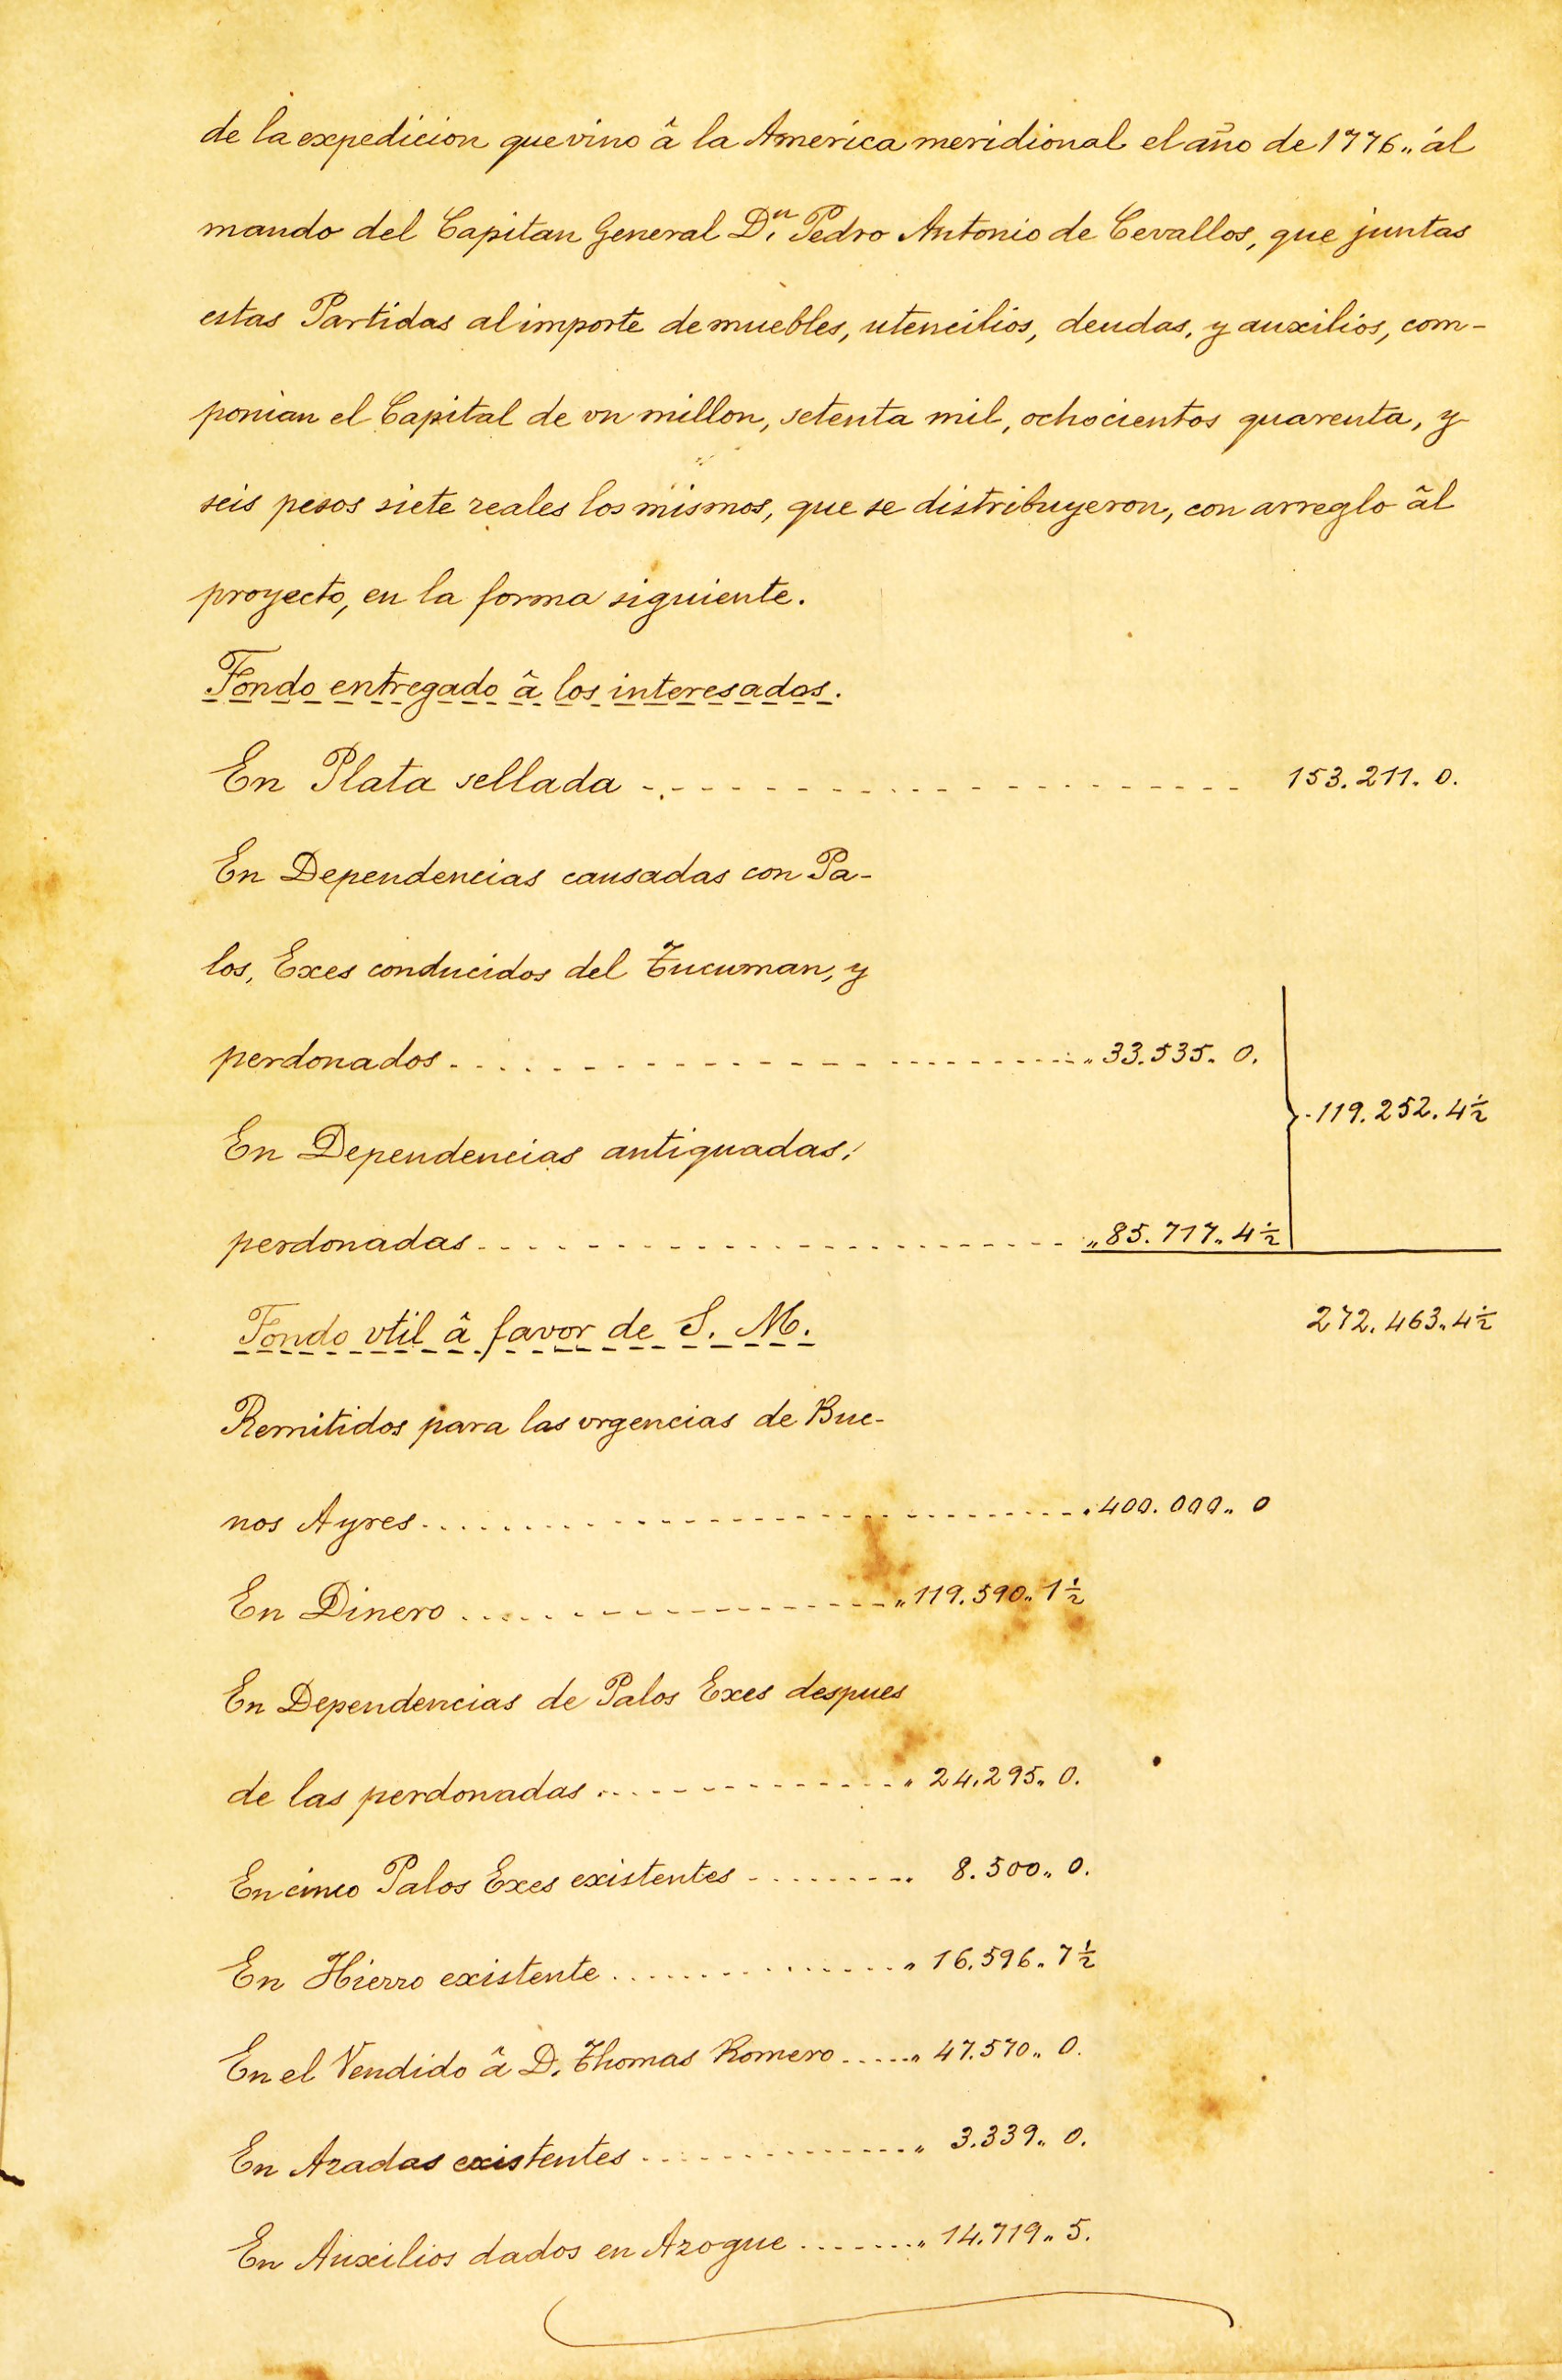 de la expedicion que vino â la America meridional el año de 1776,, ál
mando del Capitan General D.n Pedro Antonio de Cevallos, que juntas
estas Partidas al importe de muebles, utencilios, deudas, y auxilios, com-
ponian el Capital de vn millon, setenta mil, ochocientos quarenta, y
seis pesos siete reales los mismos, que se distribuyeron, con arreglo âl
proyecto, en la forma siguiente.
Fondo entregado â los interesados.
En Plata sellada - - - - - - - - - - - - - - - - - - - - 153.211. 0.
En Dependencias causadas con Pa-
los, Exes conducidos del Tucuman, y
perdonados - - - - - - - - - - - - - - - - - - - - ,, 33.535. 0.
119.252. 4½
En Dependencias antiguadas,
perdonadas - - - - - - - - - - - - - - - - - - - - ,, 85.717,, 4½
272.463,, 4½
Fondo vtil â favor de S. M.
Remitidos para las vrgencias de Bue-
nos Ayres - - - - - - - - - - - - - - - - - - - - 400.000,, 0
En Dinero - - - - - - - - - - - - - - - ,, 119.590,, 1½
En Dependencias de Palos Exes despues
de las perdonadas - - - - - - - - - - ,, 24.295,, 0.
En cinco Palos Exes existentes - - - - - - - 8.500,, 0.
En Hierro existente - - - - - - - - - - ,, 16.596,, 7½
En el Vendido â D. Thomas Romero - - - - ,, 47.570,, 0.
En Azadas existentes - - - - - - - - - - ,, 3.339,, 0.
En Auxilios dados en Azogue - - - - - - ,, 14.719,, 5.